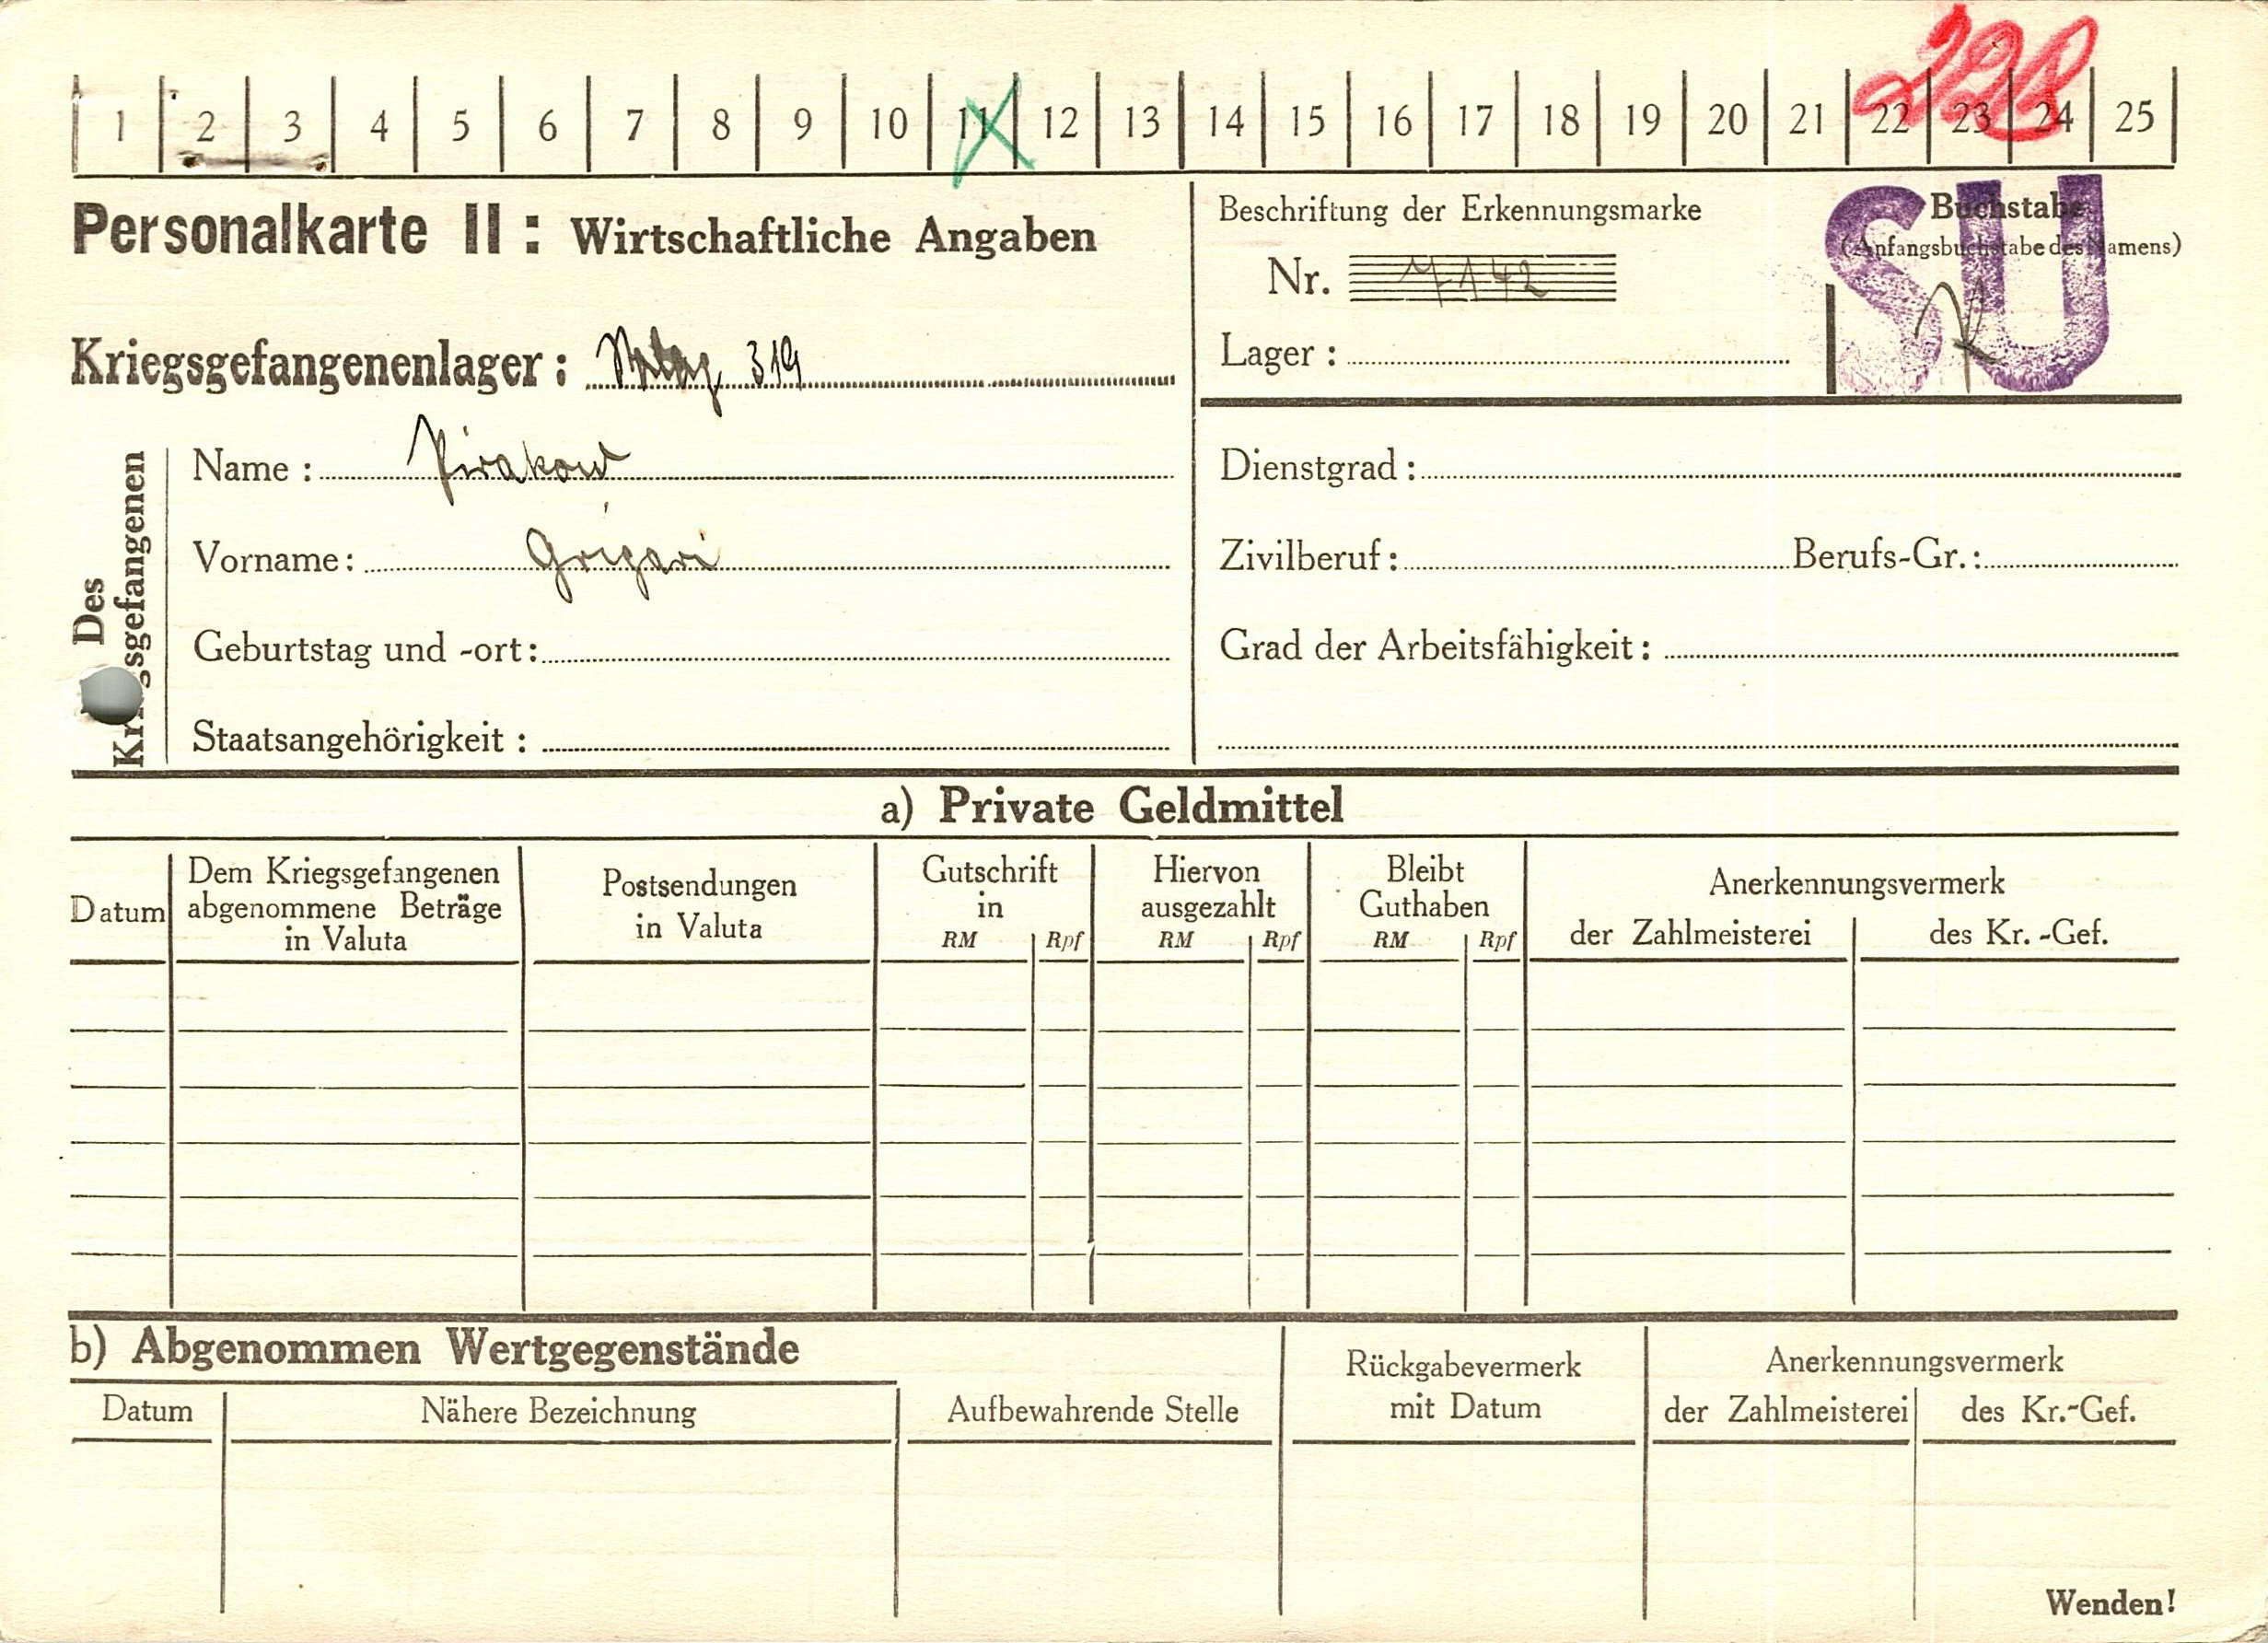 1 2 3 4 5 6 7 8 9 10 11 12 13 14 15 16 17 18 19 20 21 22 23 24 25
Personalkarte II : Wirtschaftliche Angaben
Kriegsgefangenenlager : Stalag 319
Beschriftung der Erkennungsmarke
Nr. 7142
Lager :
SU
Buchstabe
(Anfangsbuchstabe des Namens)
Des
Kriegsgefangenen
Name : Pirakow
Vorname : Grigori
Geburtstag und -ort :
Staatsangehörigkeit :
Dienstgrad :
Zivilberuf : Berufs-Gr. :
Grad der Arbeitsfähigkeit :
a) Private Geldmittel
Datum
Dem Kriegsgefangenen
abgenommene Beträge
in Valuta
Postsendungen
in Valuta
Gutschrift
in
RM Rpf
Hiervon
ausgezahlt
RM Rpf
Bleibt
Guthaben
RM Rpf
Anerkennungsvermerk
der Zahlmeisterei des Kr. -Gef.
b) Abgenommen Wertgegenstände
Datum
Nähere Bezeichnung
Aufbewahrende Stelle
Rückgabevermerk
mit Datum
Anerkennungsvermerk
der Zahlmeisterei des Kr.-Gef.
Wenden!